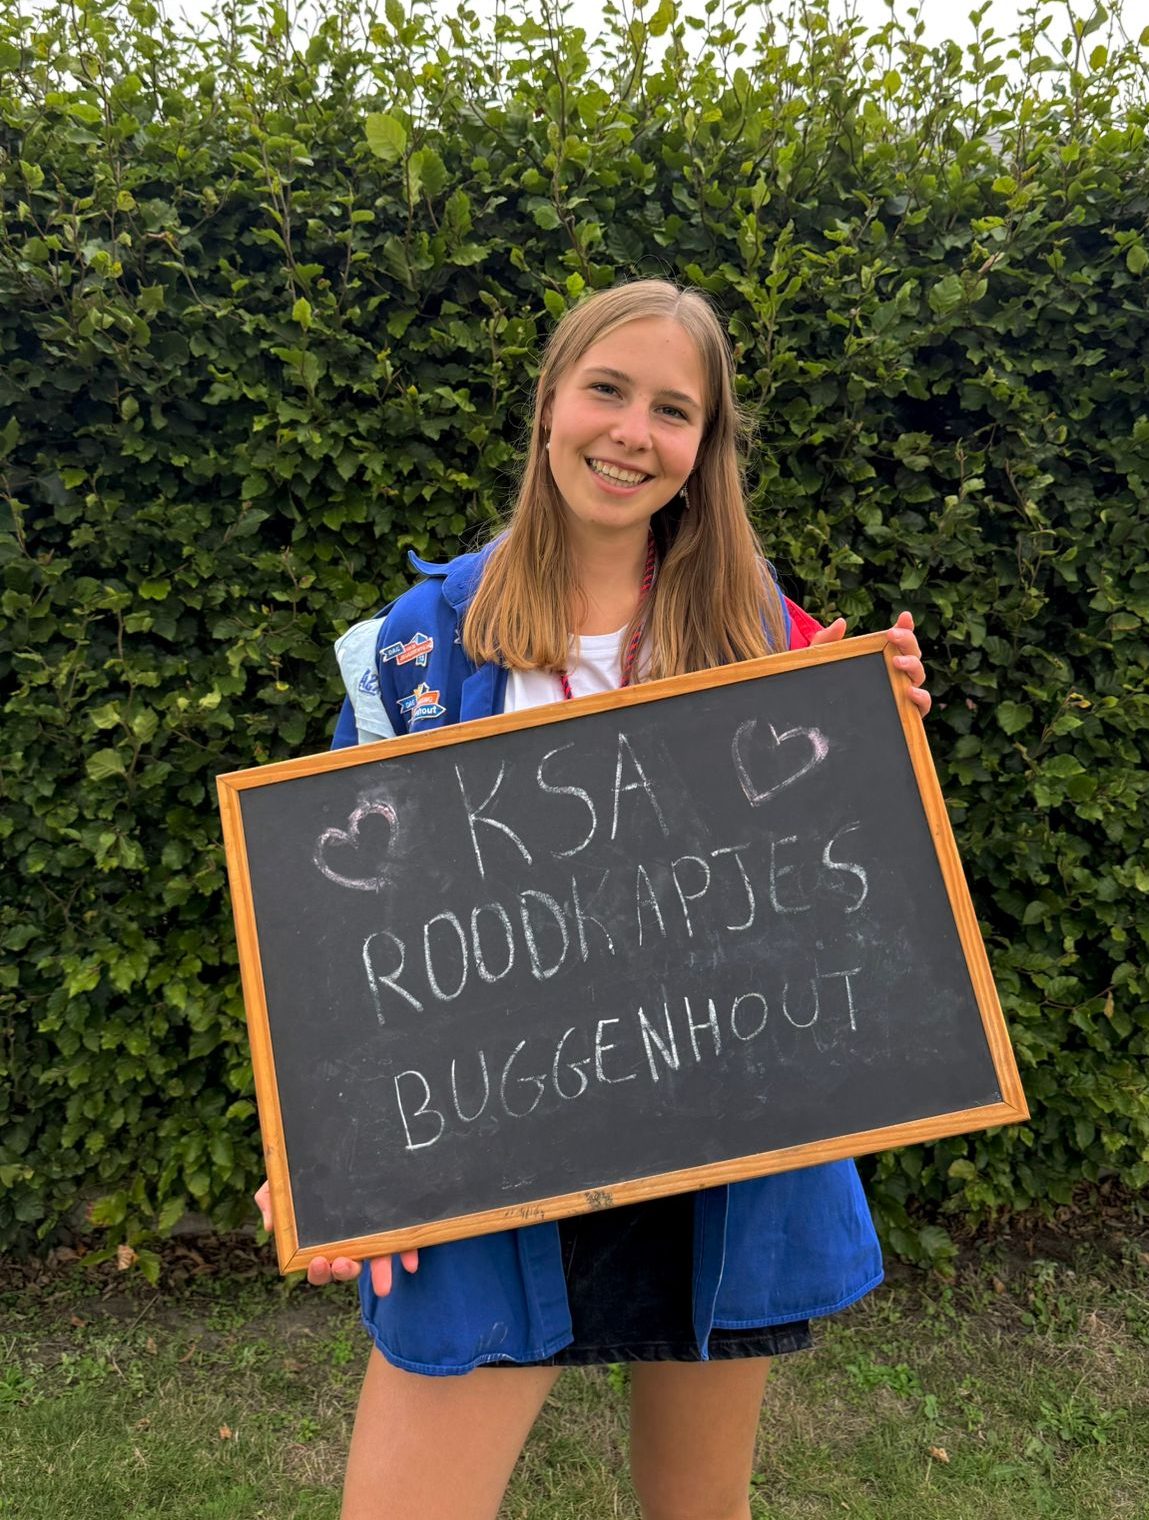 KSA
ROODKAPJES
BUGGENHOUT